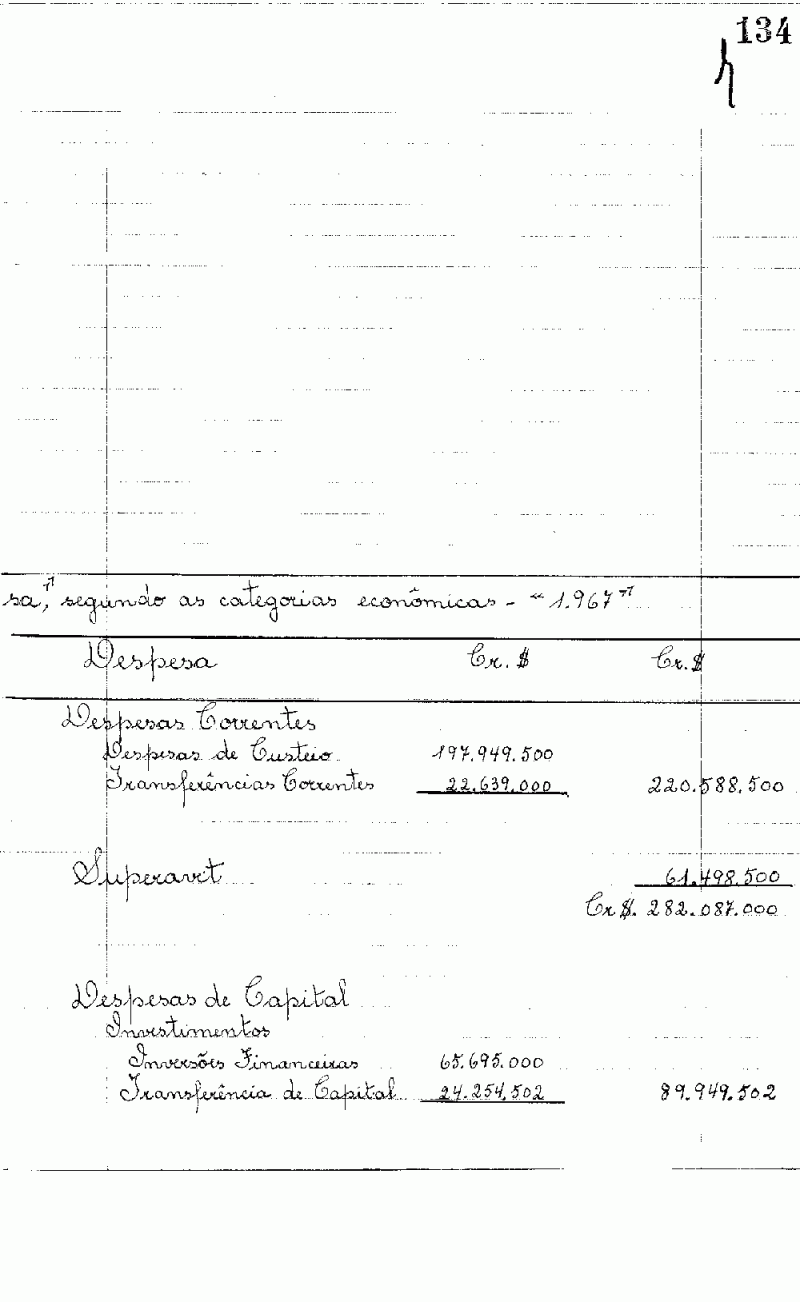 134
sa," segundo as categorias econômicas - "1.967"
Despesa Cr. $ Cr. $
Despesas Correntes
Despesas de Custeio 197.949.500
Transferências Correntes 22.639.000 220.588.500
Superavit 61.498.500
Cr $. 282.087.000
Despesas de Capital
Investimentos
Inversões Financeiras 65.695.000
Transferência de Capital 24.254.502 89.949.502